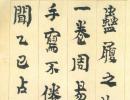 蠱履之
一卷周易
手寫不倦
聞乙巳占